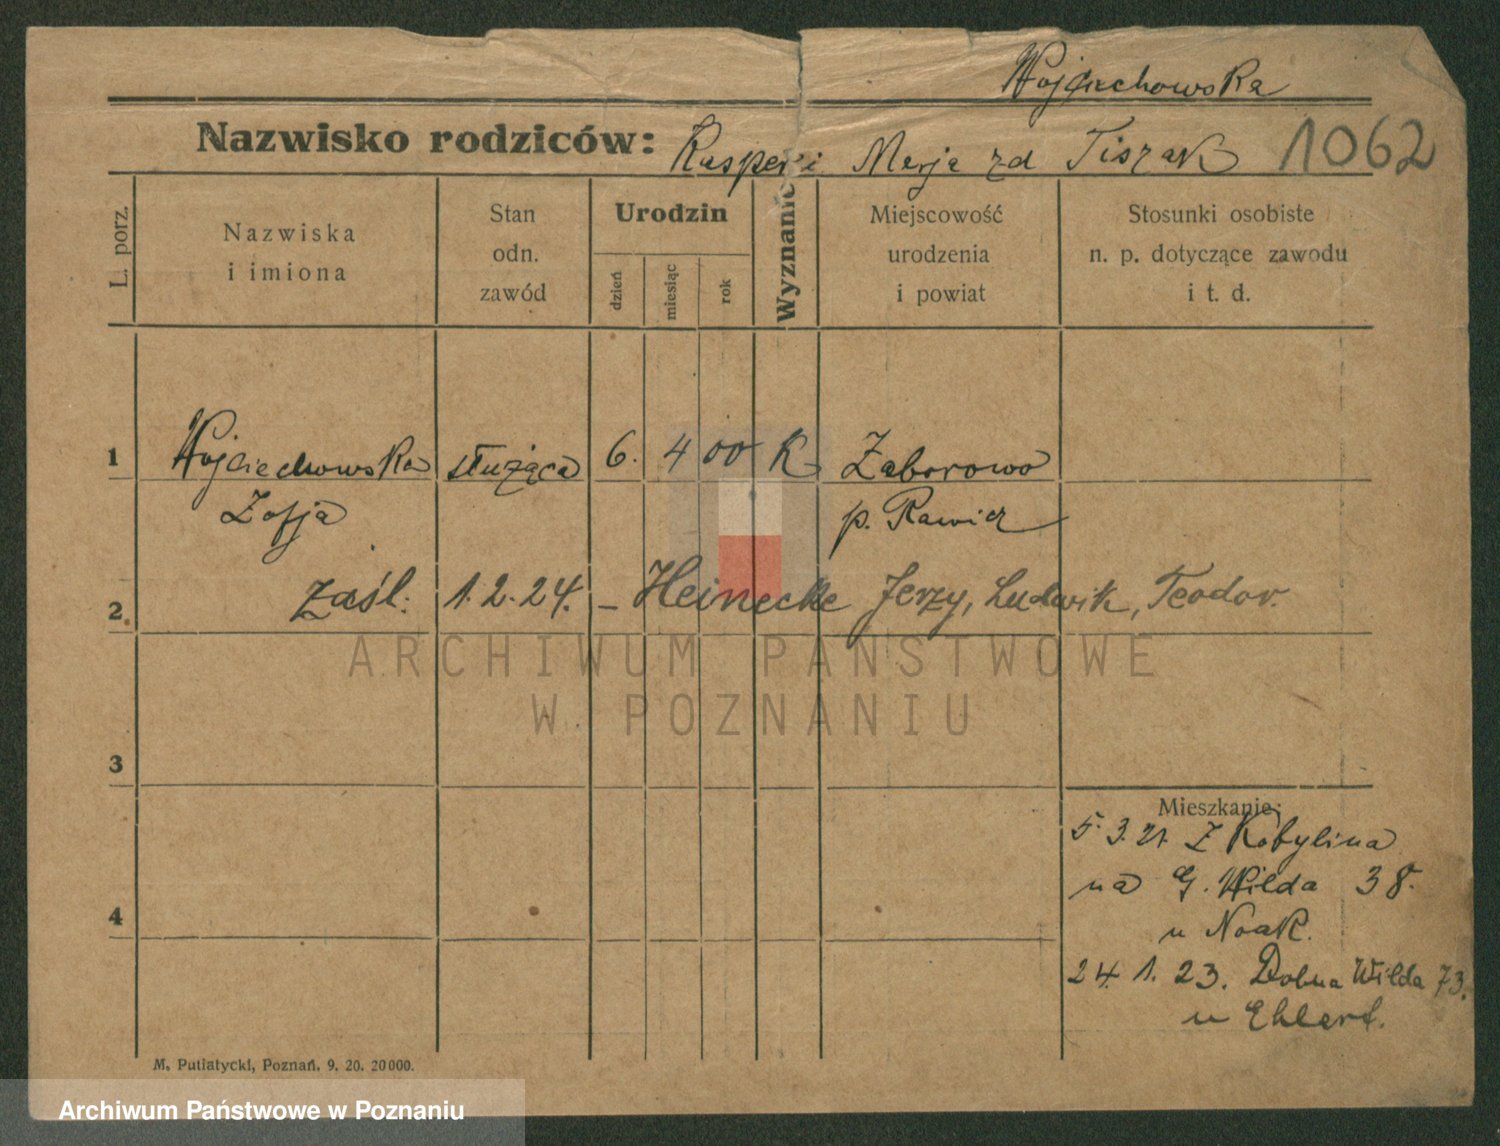 Wojciechowska
Nazwisko rodziców: Kasper i Marja zd Tiszak 1062
L. porz.
Nazwiska
i imiona
Stan
odn.
zawód
Urodzin
dzień
miesiąc
rok
Wyznanie
Miejscowość
urodzenia
i powiat
Stosunki osobiste
n. p. dotyczące zawodu
i t. d.
1 Wojciechowska służąca 6. 4 00 K Zaborowo
Zofja p. Rawicz
2. zaśl: 1.2.24. – Heinecke Jerzy, Ludwik, Teodor.
ARCHIWUM PAŃSTWOWE
W POZNANIU
3
Mieszkanie:
5.3.21. Z Kobylina
na G. Wilda 38.
4
u Noak.
24. 1. 23. Dolna Wilda 73.
u Ehlert.
M. Putiatycki, Poznań. 9. 20. 20000.
Archiwum Państwowe w Poznaniu